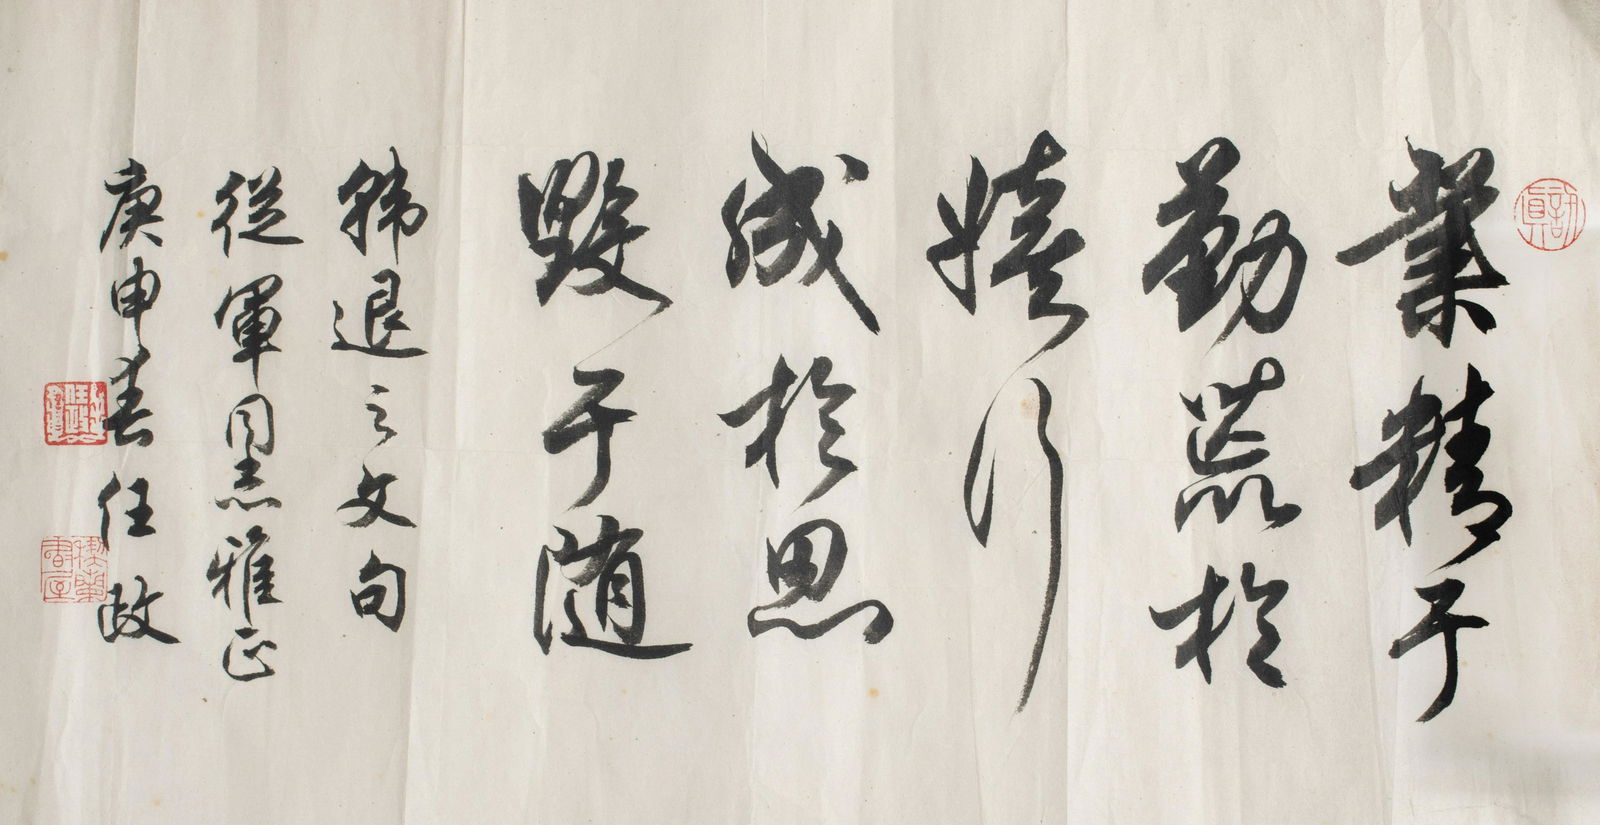 業精于
勤荒於
嬉行
成於思
毀于随
韩退之文句
從軍同志雅正
庚申春任政